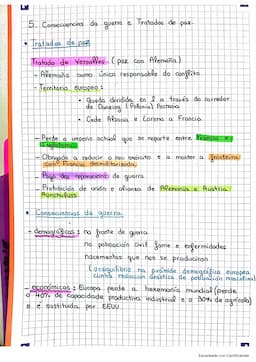 5. Consecuencias da guerra e Tratados de paz.
• Tratados de paz
Tratado de Versalles (paz con Alemaña)
- Alemaña como único responsable do conflito
- Territorio europeo:
• Queda dividida en 2 a través do corredor
de Danzig (Polonia) Posnania
• Cede Alsacia e Lorena a Francia.
- Perde o imperio colonial que se reparte entre Francia e
Inglaterra
- Obrigado a reducir o seu exército e a manter a fronteira
con Francia desmilitarizada.
- Pago das reparacións de guerra
- Prohibición de unión e alianza de Alemania e Austria
Anschluss
• Consecuencias da guerra.
- demográficas: na fronte de guerra
na poboación civil fame e enfermidades
nacementos que non se produciron
(desequilibrio na pirámide demográfica europea
cunha redución drástica de poboación masculina)
- económicas: Europa perde a hexemonía mundial (perde
o 40% de capacidade productiva industrial e o 30% de agrícola)
e é sustituída por EEUU.
Escaneado con CamScanner